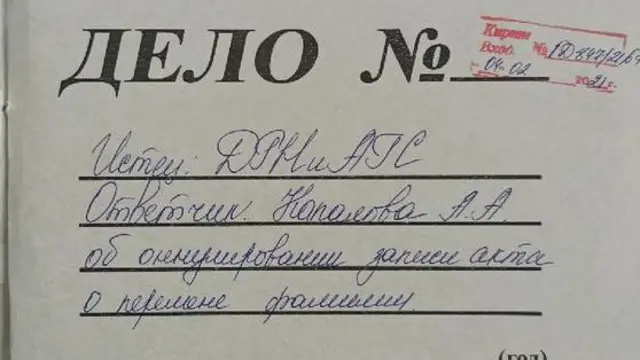 ДЕЛО №
Вход. №
04 02 2021 г.
Истец: ДРНиАГС
Ответчик. Капалова А.А.
об аннулировании записи акта
о перемене фамилии.
(год)